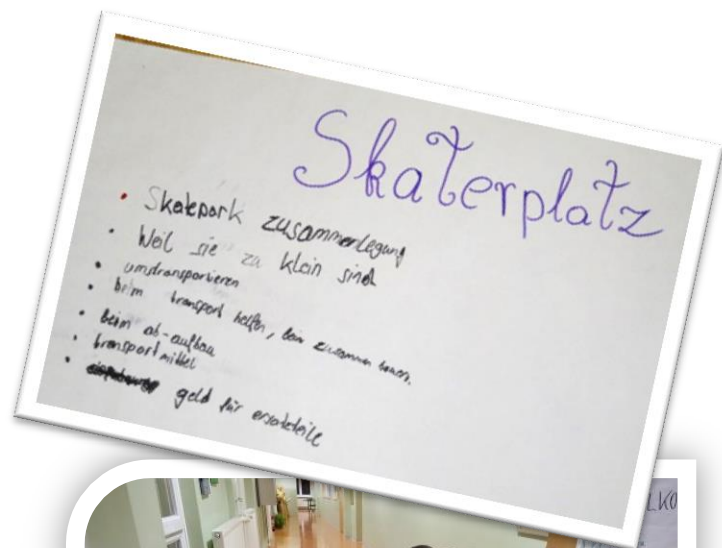 Skaterplatz
• Skatepark zusammenlegung
• Weil sie zu klein sind
• umstransportieren
• beim transport helfen, beim zusammen bauen.
• beim ab-aufbau
• transportmittel
• geld für ersatzteile
LKO